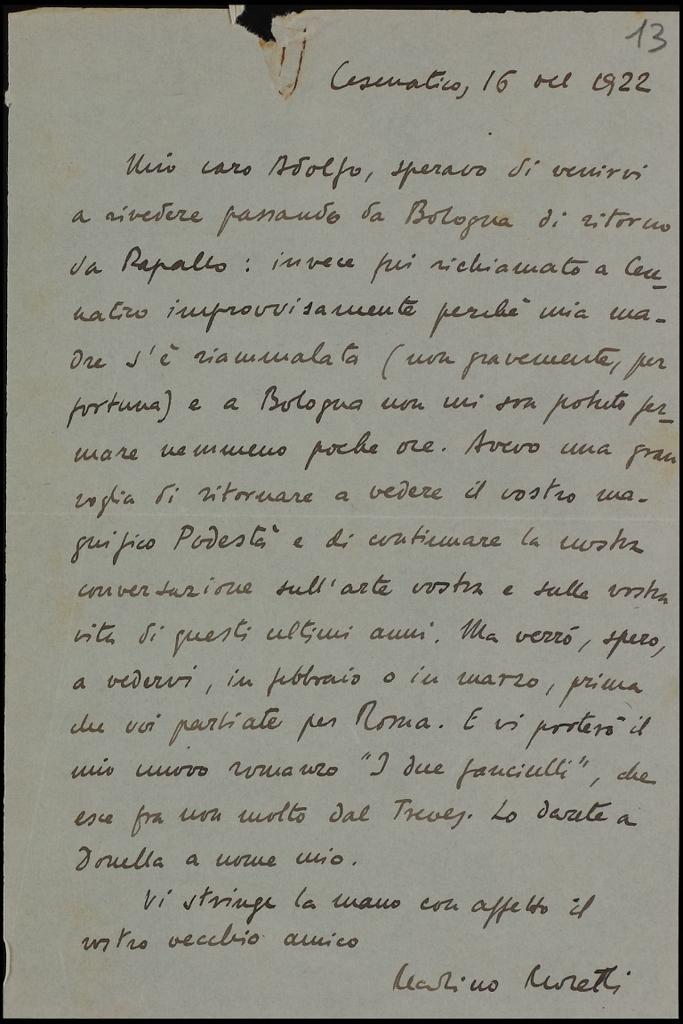 13
Cesenatico, 16 del 1922
Mio caro Adolfo, speravo di venirvi
a rivedere passando da Bologna di ritorno
da Rapallo: invece fui richiamato a Cese=
natico improvvisamente perchè mia ma-
dre s'è riammalata (non gravemente, per
fortuna) e a Bologna non mi son potuto fer=
mare nemmeno poche ore. Avevo una gran
voglia di ritornare a vedere il vostro ma-
gnifico Podestà e di continuare la nostra
conversazione sull'arte vostra e sulla vostra
vita di questi ultimi anni. Ma verrò, spero,
a vedervi, in febbraio o in marzo, prima
che voi partiate per Roma. E vi porterò il
mio nuovo romanzo "I due fanciulli", che
esce fra non molto dal Treves. Lo darete a
Donella a nome mio.
Vi stringe la mano con affetto il
vostro vecchio amico
Marino Moretti